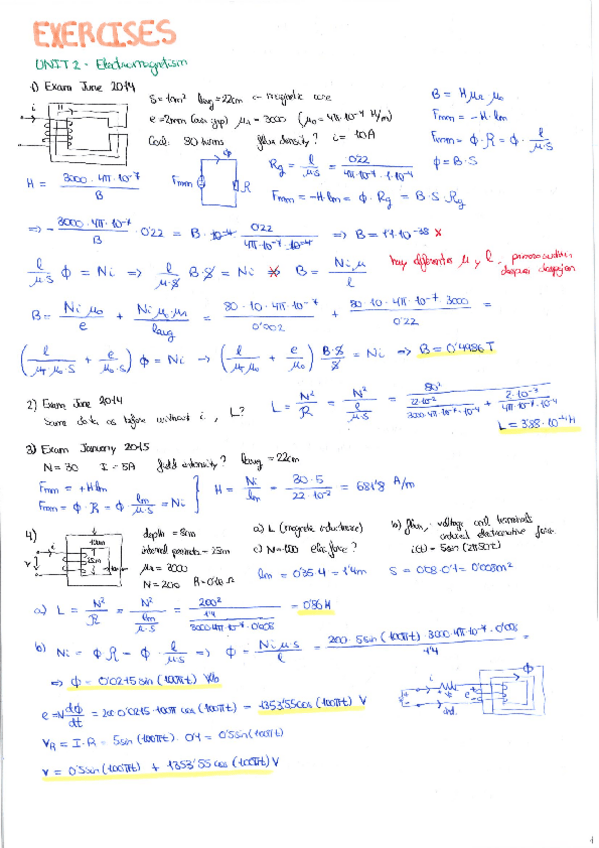 EXERCISES
UNIT 2 - Electromagnetism
1) Exam June 2014
S = 1cm² lavg = 22cm <- magnetic core
e = 2mm (air gap) μr = 3000 (μ0 = 4π·10⁻⁷ H/m)
Coil: 80 turns flux density? i = 10A
B = H μr μ0
Fmm = -H·lm
Fmm = ϕ·R = ϕ · l/μ·S
ϕ = B·S
i
H = 3000·4π·10⁻⁷ / B
Fmm R ϕ
Rg = l/μ·S = 0'22 / 4π·10⁻⁷·1·10⁻⁴
Fmm = -H·lm = ϕ·Rg = B·S·Rg
=> - 3000·4π·10⁻⁷ / B · 0'22 = B·10⁻⁴ · 0'22 / 4π·10⁻⁷·10⁻⁴ => B = 1'7·10⁻³⁸ x
l/μS ϕ = Ni => l/μ·S B·S = Ni x B = Niμ / l
hay diferentes μ y l
B = Niμ0 / e + Niμ0·μr / lavg = 80·10·4π·10⁻⁷ / 0'002 + 80·10·4π·10⁻⁷·3000 / 0'22 =
( l/μr·μ0·S + e/μ0·S ) ϕ = Ni -> ( l/μr·μ0 + e/μ0 ) B·S/S = Ni => B = 0'4986 T
2) Exam June 2014
Same data as before without i, L?
L = N²/R = N² / l/μ·S = 80² / 22·10⁻²/3000·4π·10⁻⁷·10⁻⁴ + 2·10⁻³/4π·10⁻⁷·10⁻⁴
L = 3'88·10⁻⁴ H
3) Exam January 2015
N = 30 I = 5A field intensity? lavg = 22cm
Fmm = +H·lm
Fmm = ϕ·R = ϕ · lm/μ·S = Ni
H = Ni/lm = 30·5 / 22·10⁻² = 681'8 A/m
4)
i
V
depth = 8cm
internal perimeter = 25cm
μr = 3000
N = 200 R = 0'10 Ω
a) L (magnetic inductance)
c) N = 100 elec. force?
b) flux, voltage and terminals
induced electromotive force
i(t) = 5sin(2π50t)
lm = 0'35·4 = 1'4m
S = 0'08·0'1 = 0'008m²
a) L = N²/R = N² / lm/μ·S = 200² / 1'4/3000·4π·10⁻⁷·0'008 = 0'86 H
b) Ni = ϕ·R = ϕ · l/μS => ϕ = Niμ·S / l = 200·5sin(100πt)·3000·4π·10⁻⁷·0'008 / 1'4 =
=> ϕ = 0'0215 sin(100πt) Wb
e = N dϕ/dt = 200·0'0215·100π cos(100πt) = 1353'55cos(100πt) V
VR = I·R = 5sin(100πt)·0'1 = 0'5sin(100πt)
V = 0'5sin(100πt) + 1353'55cos(100πt) V